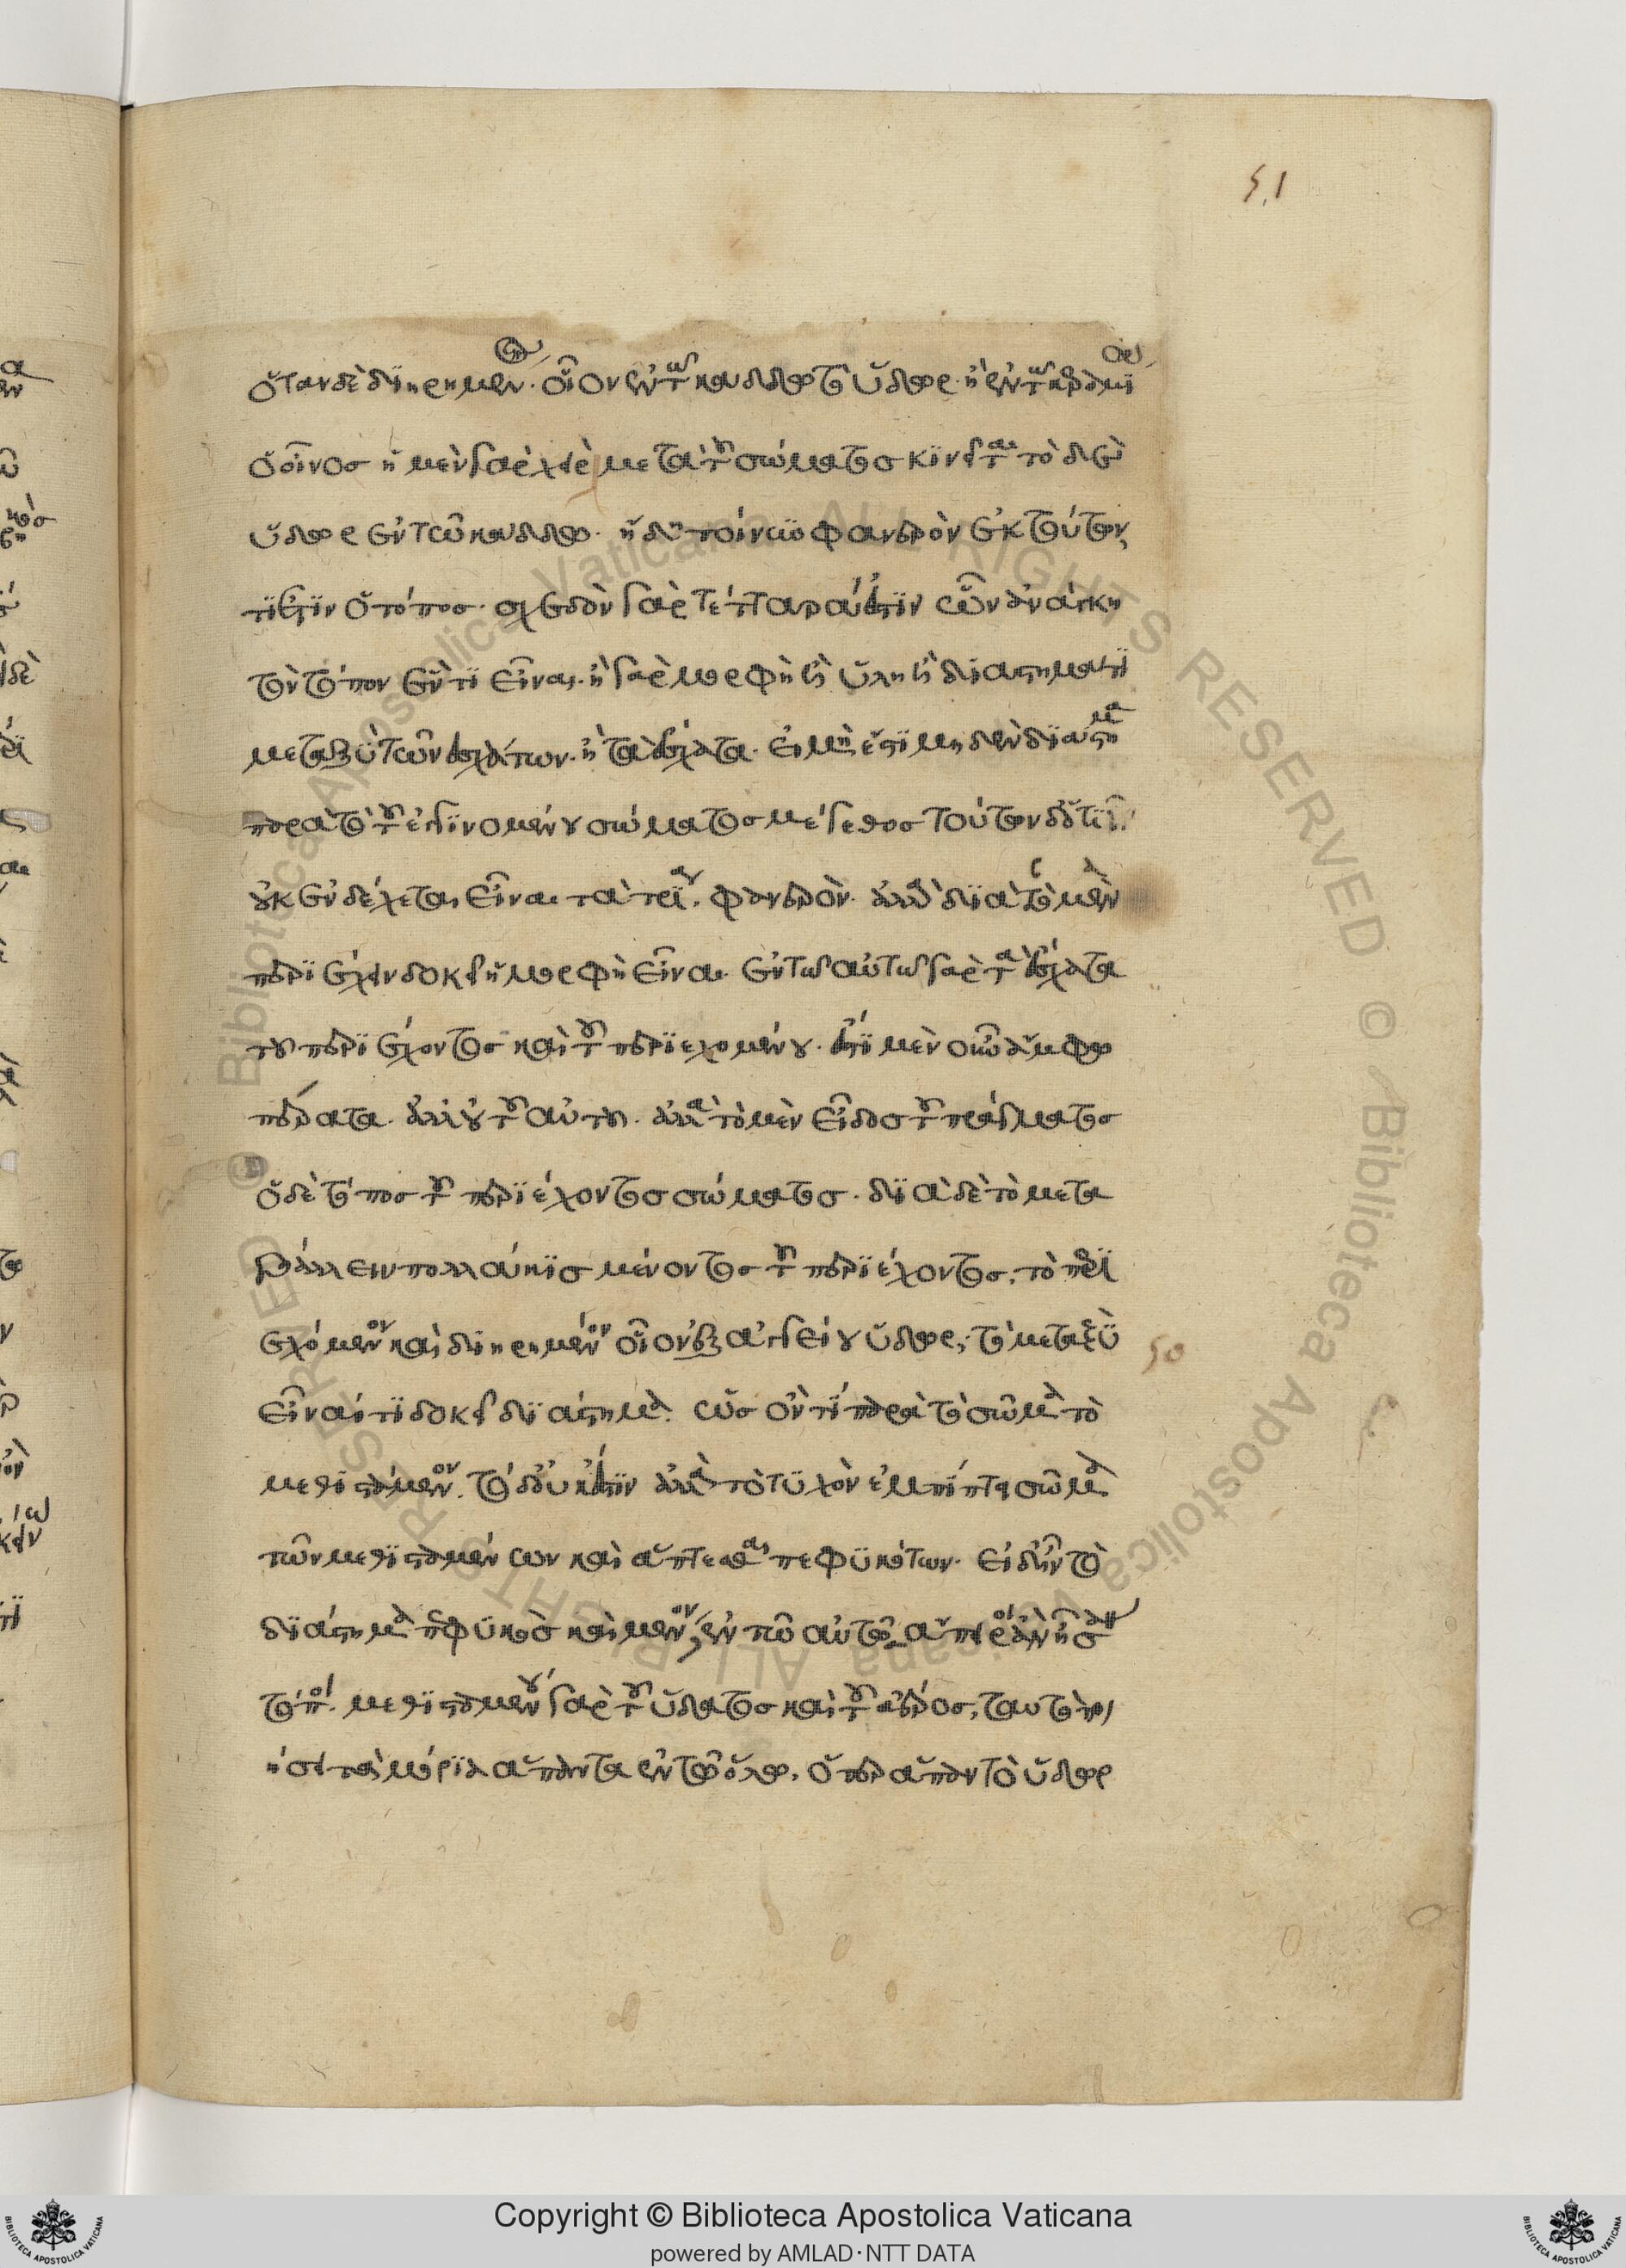 ὅταν δὲ διηρημένον. οἷον ἐν τῶ κάδδω τὸ ὕδωρ. ἢ ἐν τῶ κεραμίω
ὁ οἶνος ἡ μὲν γὰρ χεὶρ μετὰ τοῦ σώματος κινεῖται τὸ δὲ
ὕδωρ ἐν τῶ κάδδω. ἤδη τοίνυν φανερὸν ἐκ τούτων
τί ἐστιν ὁ τόπος. σχεδὸν γὰρ τέτταρά ἐστιν ὧν ἀνάγκη
τὸν τόπον ἕν τι εἶναι. ἢ γὰρ μορφὴ ἢ ὕλη ἢ διάστημά τι
μεταξὺ τῶν ἐσχάτων. ἢ τὰ ἔσχατα. εἰ μὴ ἔστι μηδὲν διάστημα
παρὰ τὸ τοῦ ἐγγινομένου σώματος μέγεθος τούτων δ ὅτι
οὐκ ἐνδέχεται εἶναι τὰ τρία. φανερόν. ἀλλὰ διὰ τὸ μὲν
περιέχειν δοκεῖ ἡ μορφὴ εἶναι. ἐν τῶ αὐτῶ γὰρ τὰ ἔσχατα
τοῦ περιέχοντος καὶ τοῦ περιεχομένου. ἔστι μὲν οὖν ἄμφω
πέρατα. ἀλλ οὐ τοῦ αὐτοῦ. ἀλλὰ τὸ μὲν εἶδος τοῦ πράγματος
ὁ δὲ τόπος τοῦ περιέχοντος σώματος. διὰ δὲ τὸ μετα
βάλλειν πολλάκις μένοντος τοῦ περιέχοντος, τὸ περι
εχόμενον καὶ διηρημένον οἷον ἐξ ἀγγείου ὕδωρ, τὸ μεταξὺ
εἶναί τι δοκεῖ διάστημα. ὡς ὄν τι παρὰ τὸ σῶμα τὸ
μεθιστάμενον. τὸ δ οὐκ ἔστιν ἀλλὰ τὸ τυχὸν ἐμπίπτει σῶμα
τῶν μεθισταμένων καὶ ἅπτεσθαι πεφυκότων. εἰ δ ἦν τὸ
διάστημα πεφυκὸς καὶ μένον, ἐν τῶ αὐτῶ ἄπειροι ἂν ἦσαν
τόποι. μεθισταμένου γὰρ τοῦ ὕδατος καὶ τοῦ ἀέρος, ταυτὸ ποι
ήσει τὰ μόρια ἅπαντα ἐν τῶ ὅλω, ὅπερ ἅπαν τὸ ὕδωρ
51
50
Copyright © Biblioteca Apostolica Vaticana
powered by AMLAD·NTT DATA